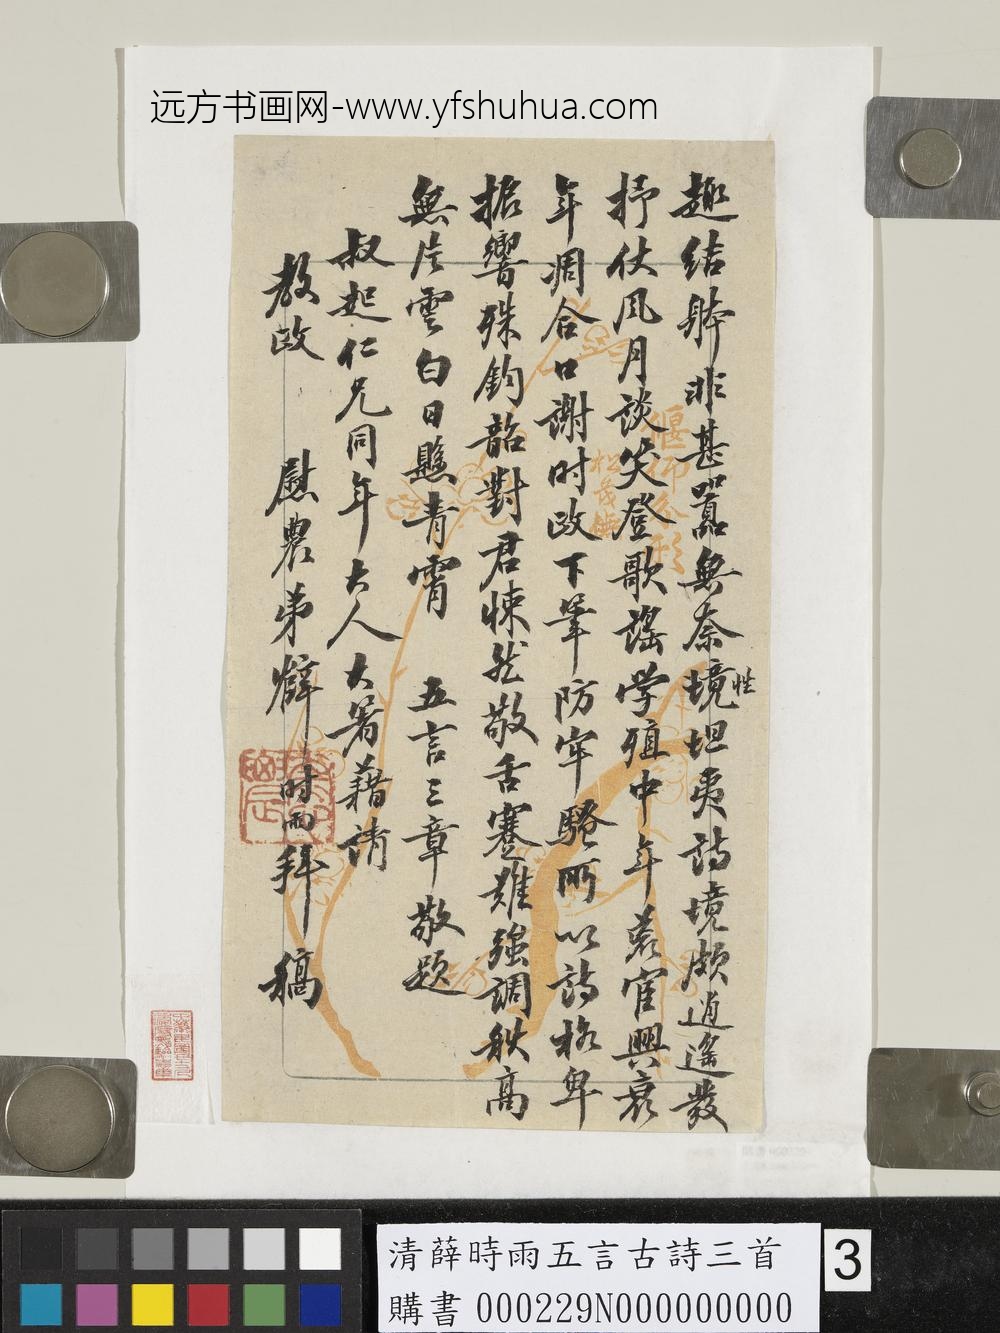 远方书画网-www.yfshuhua.com
趣結躰非甚囂無奈境坦夷詩境頗逍遙發
性
抒仗风月談笑登歌謠学殖中年荒宦興衰
年凋合口謝时政下筆防牢騷所以詩格卑
振響殊鈞韶對君悚然敬舌蹇難強調秋高
無片雲白日懸青霄 五言三章敬題
叔起仁兄同年大人大著藉請
教政 慰農弟薛时雨拜稿
偃仰分形
清薛時雨五言古詩三首
購書 000229N000000000
3